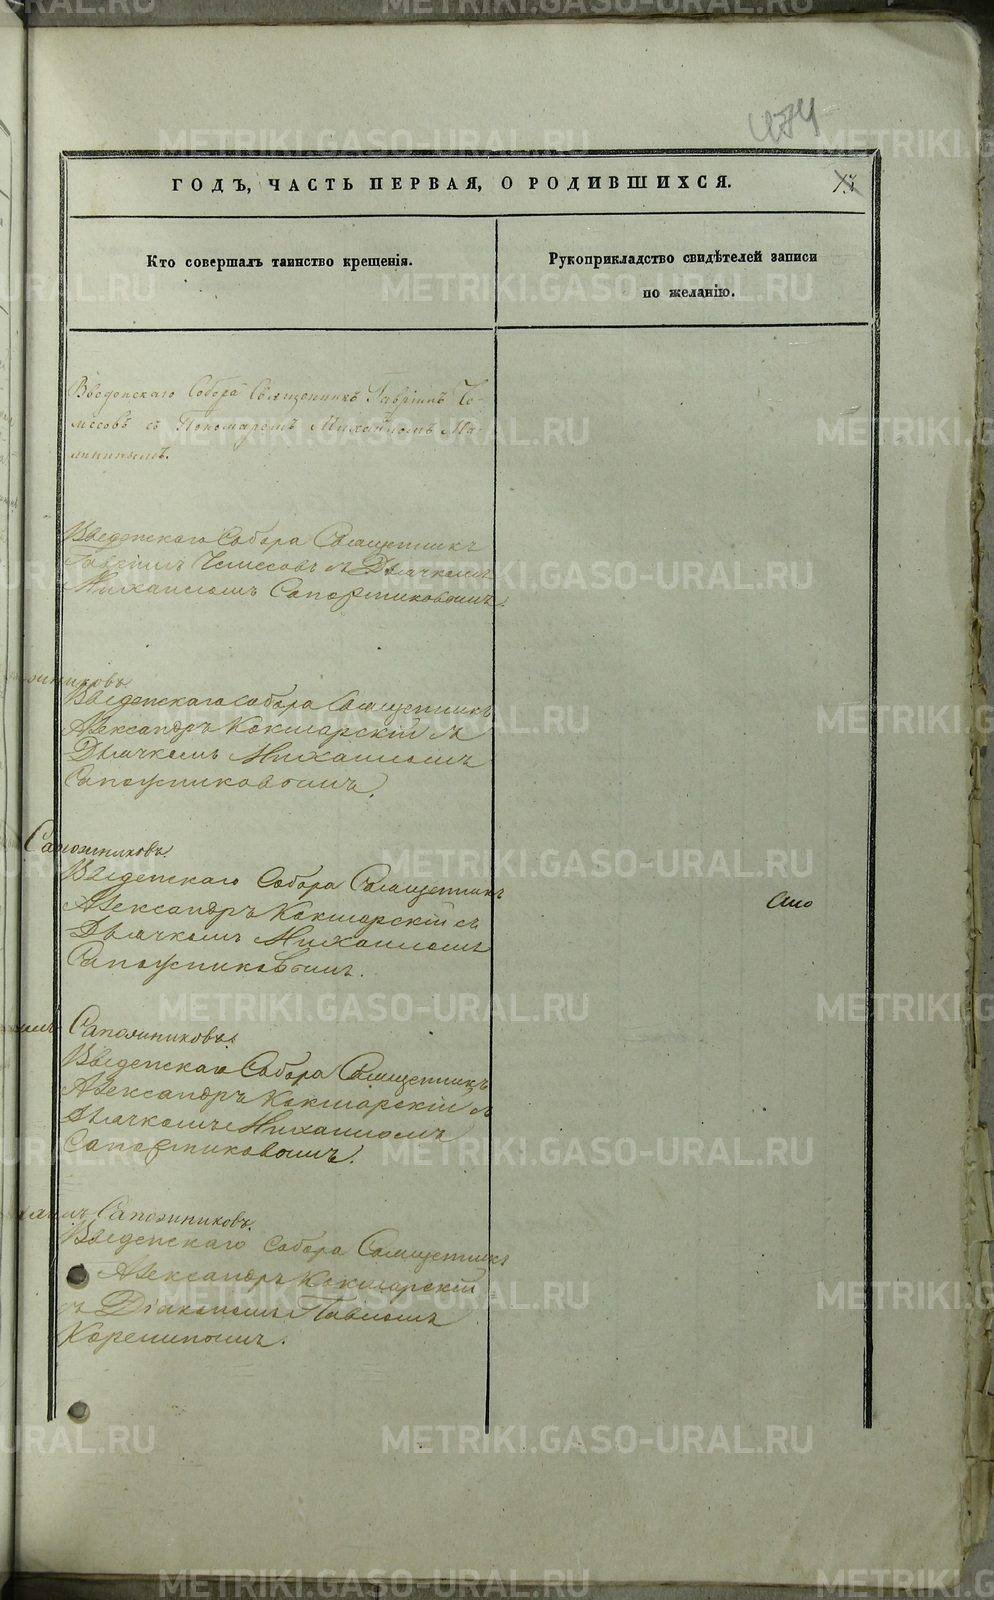 474
ГОДЪ, ЧАСТЬ ПЕРВАЯ, О РОДИВШИХСЯ.
Кто совершалъ таинство крещенія.
Рукоприкладство свидѣтелей записи
по желанію.
Введенскаго Собора Священникъ Гавріилъ Че-
месовъ съ Пономаремъ Михаиломъ Ма-
мин­ымъ.
Введенскаго Собора Священникъ
Гавріилъ Чемесовъ съ Дьячкомъ
Михаиломъ Сапожниковымъ.
Введенскаго Собора Священникъ
Александръ Кокшарскій съ
Дьячкомъ Михаиломъ
Сапожниковымъ.
Сапожниковъ.
Введенскаго Собора Священникъ
Александръ Кокшарскій съ
Дьячкомъ Михаиломъ
Сапожниковымъ.
Сапожниковъ.
Введенскаго Собора Священникъ
Александръ Кокшарскій съ
Дьячкомъ Михаиломъ
Сапожниковымъ.
Сапожниковъ.
Введенскаго Собора Священникъ
Александръ Кокшарскій
съ Діакономъ Павломъ
METRIKI.GASO-URAL.RU